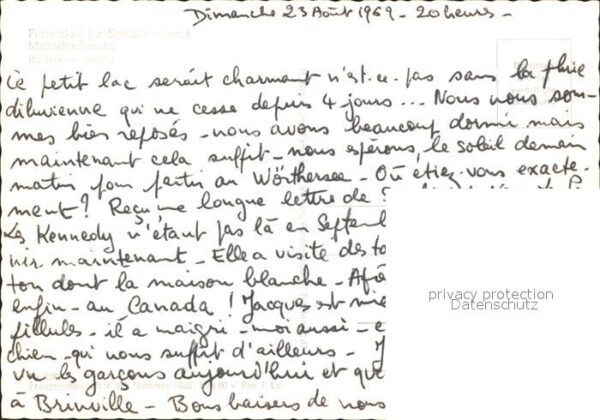 Dimanche 23 Août 1969 - 20 heures -
Ce petit lac serait charmant n'est-ce-pas sans la pluie
diluvienne qui ne cesse depuis 4 jours... Nous nous som-
mes bien reposés - nous avons beaucoup dormi mais
maintenant cela suffit - nous espérons le soleil demain
matin pour partir au Wörthersee - Où étiez-vous exacte-
ment? Reçu une longue lettre de
Les Kennedy n'étant pas là en Septemb
nir maintenant - Elle a visité des
ton dont la maison blanche -
enfin - au Canada! Jacques est
fillules - il a maigri - moi aussi -
chien - qui nous suffit d'ailleurs - J
vu les garçons aujourd'hui et que
à Brinville - Bons baisers de nous
privacy protection
Datenschutz